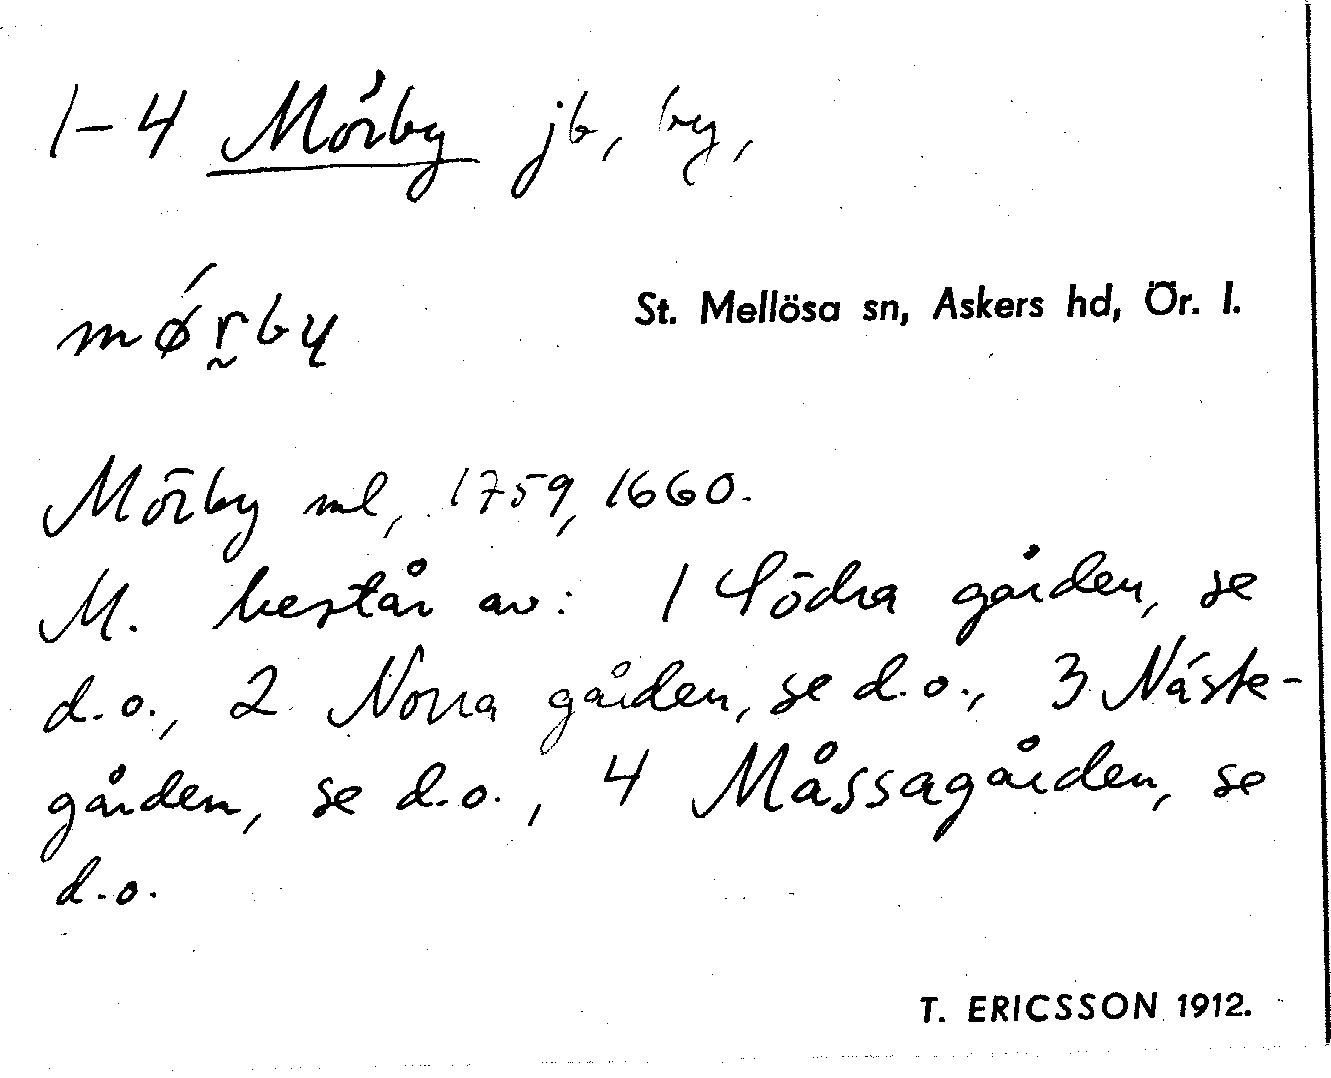 1-4 Mörby jb, by,
mǿr̰by
St. Mellösa sn, Askers hd, Ör. l.
Mörby ml, 1759, 1660.
M. består av: 1 Södra gården, se
d.o., 2 Norra gården, se d.o., 3 Näste-
gården, se d.o., 4 Måssagården, se
d.o.
T. ERICSSON 1912.